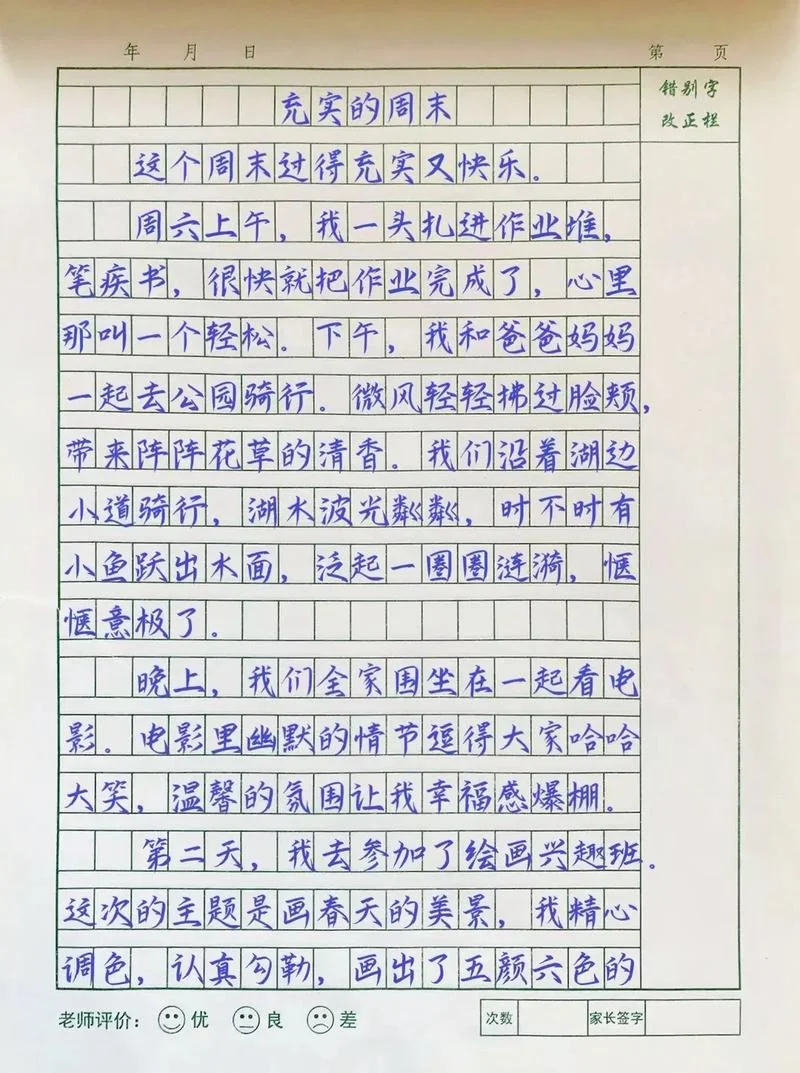 年 月 日 第 页
错别字
改正栏
充实的周末
这个周末过得充实又快乐。
周六上午，我一头扎进作业堆，
笔疾书，很快就把作业完成了，心里
那叫一个轻松。下午，我和爸爸妈妈
一起去公园骑行。微风轻轻拂过脸颊，
带来阵阵花草的清香。我们沿着湖边
小道骑行，湖水波光粼粼，时不时有
小鱼跃出水面，泛起一圈圈涟漪，惬
惬意极了。
晚上，我们全家围坐在一起看电
影。电影里幽默的情节逗得大家哈哈
大笑，温馨的氛围让我幸福感爆棚。
第二天，我去参加了绘画兴趣班。
这次的主题是画春天的美景，我精心
调色，认真勾勒，画出了五颜六色的
老师评价： 优 良 差 次数 家长签字